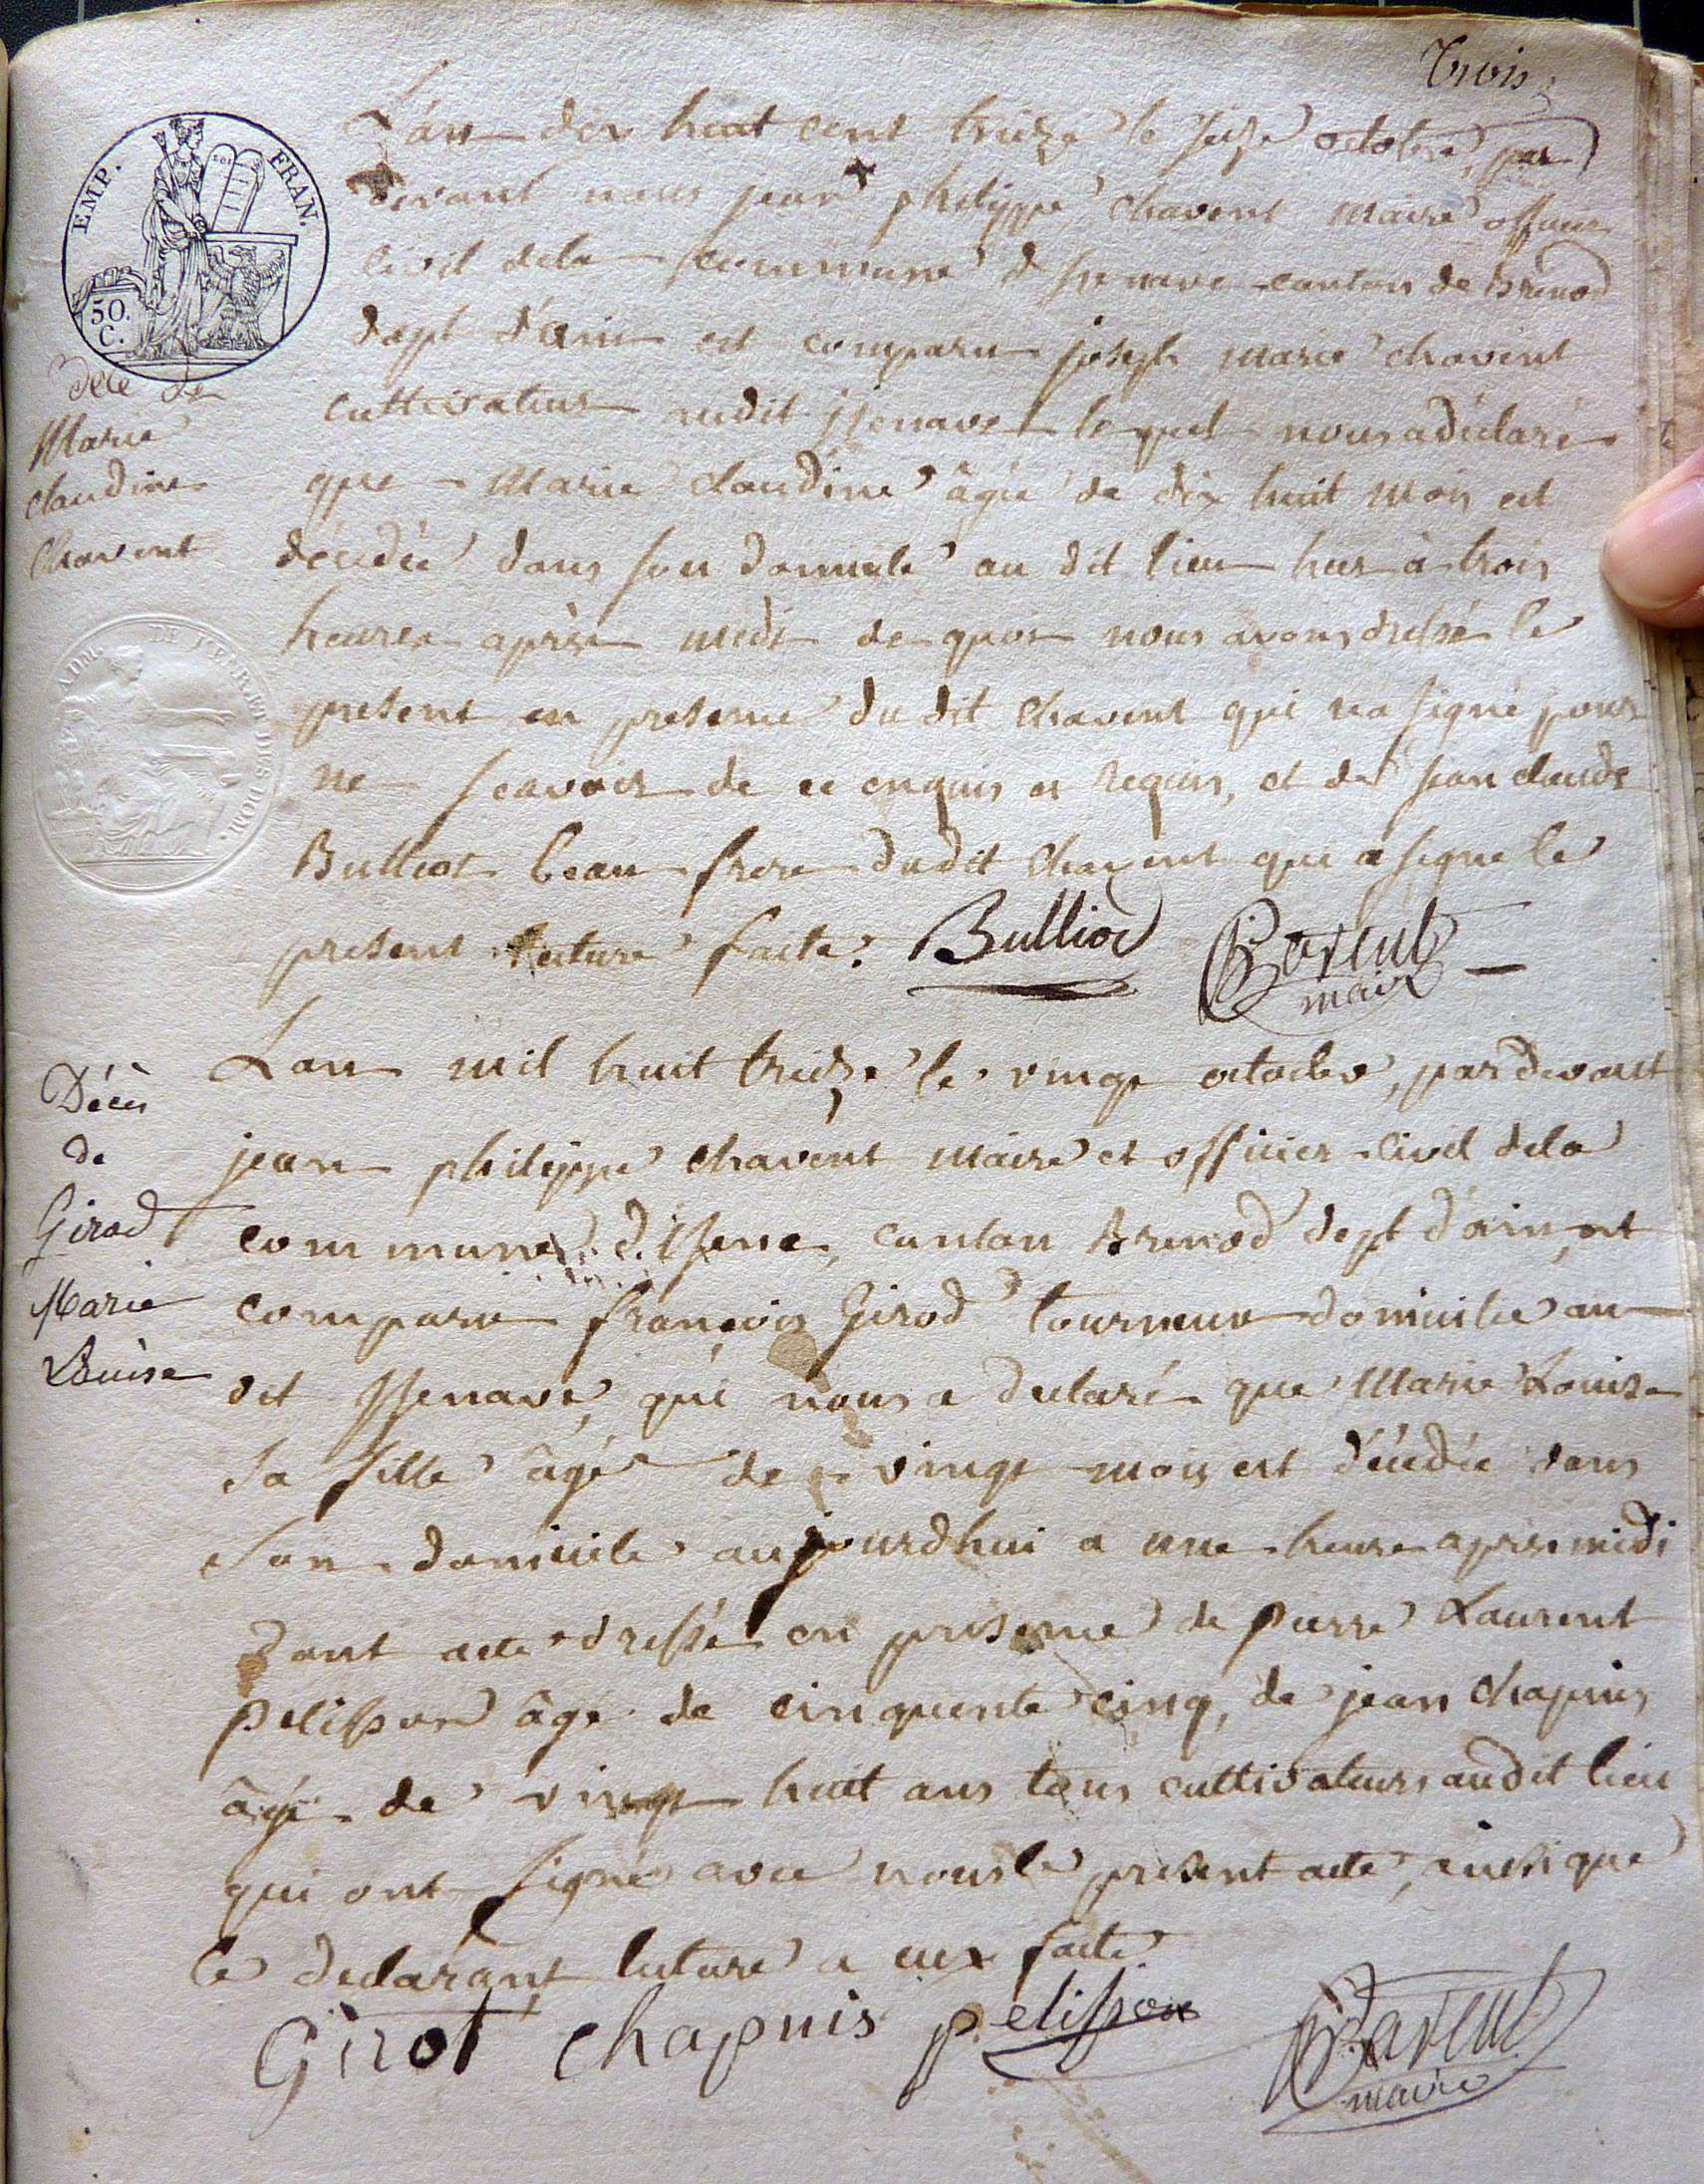 trois
EMP. FRAN.
LOI
50.
C.
L'an dix huit cent treize le seize octobre, par
devant nous jean philippe chavent maire officier
civil dela commune d'Izenave canton de Brenod
dept d'ain est comparu joseph marie chavent
cultivateur audit jzenave le quel nous a déclaré
que marie claudine âgée de dix huit mois est
décédée dans son domicile au dit lieu hier à trois
heures après midi de quoi nous avons dressé le
présent en presence du dit chavent qui na signé pour
ne scavoir de ce enquis et requis, et de jean claude
Bulliot beau frere dudit chavent qui a signé le
present lecture faite. Bulliod Chavent
maire
déce de
Marie
claudine
Chavent
ADM. DE L'ENR. ET DES DOM.
Lan mil huit treize le vingt octobre, pardevant
jean philippe chavent maire et officier civil dela
commune d'Izene, canton Brenod dept d'ain, est
comparu françois Girod tourneur domicilié au
dit jzenave, qui nous a declaré que Marie Louise
sa fille âgée de vingt mois est décédée dans
son domicile aujourdhui a une heure apres midi
dont acte dressé en presence de pierre Laurent
pelisson âgé de cinquente cinq, de jean chapuis
âgé de vingt huit ans tous cultivateurs audit lieu
qui ont signé avec nous le present acte, ainsi que
le declarant lecture a eux faite
Décès
de
Girod
Marie
Louise
Girot chapuis pelisson Chavent
maire